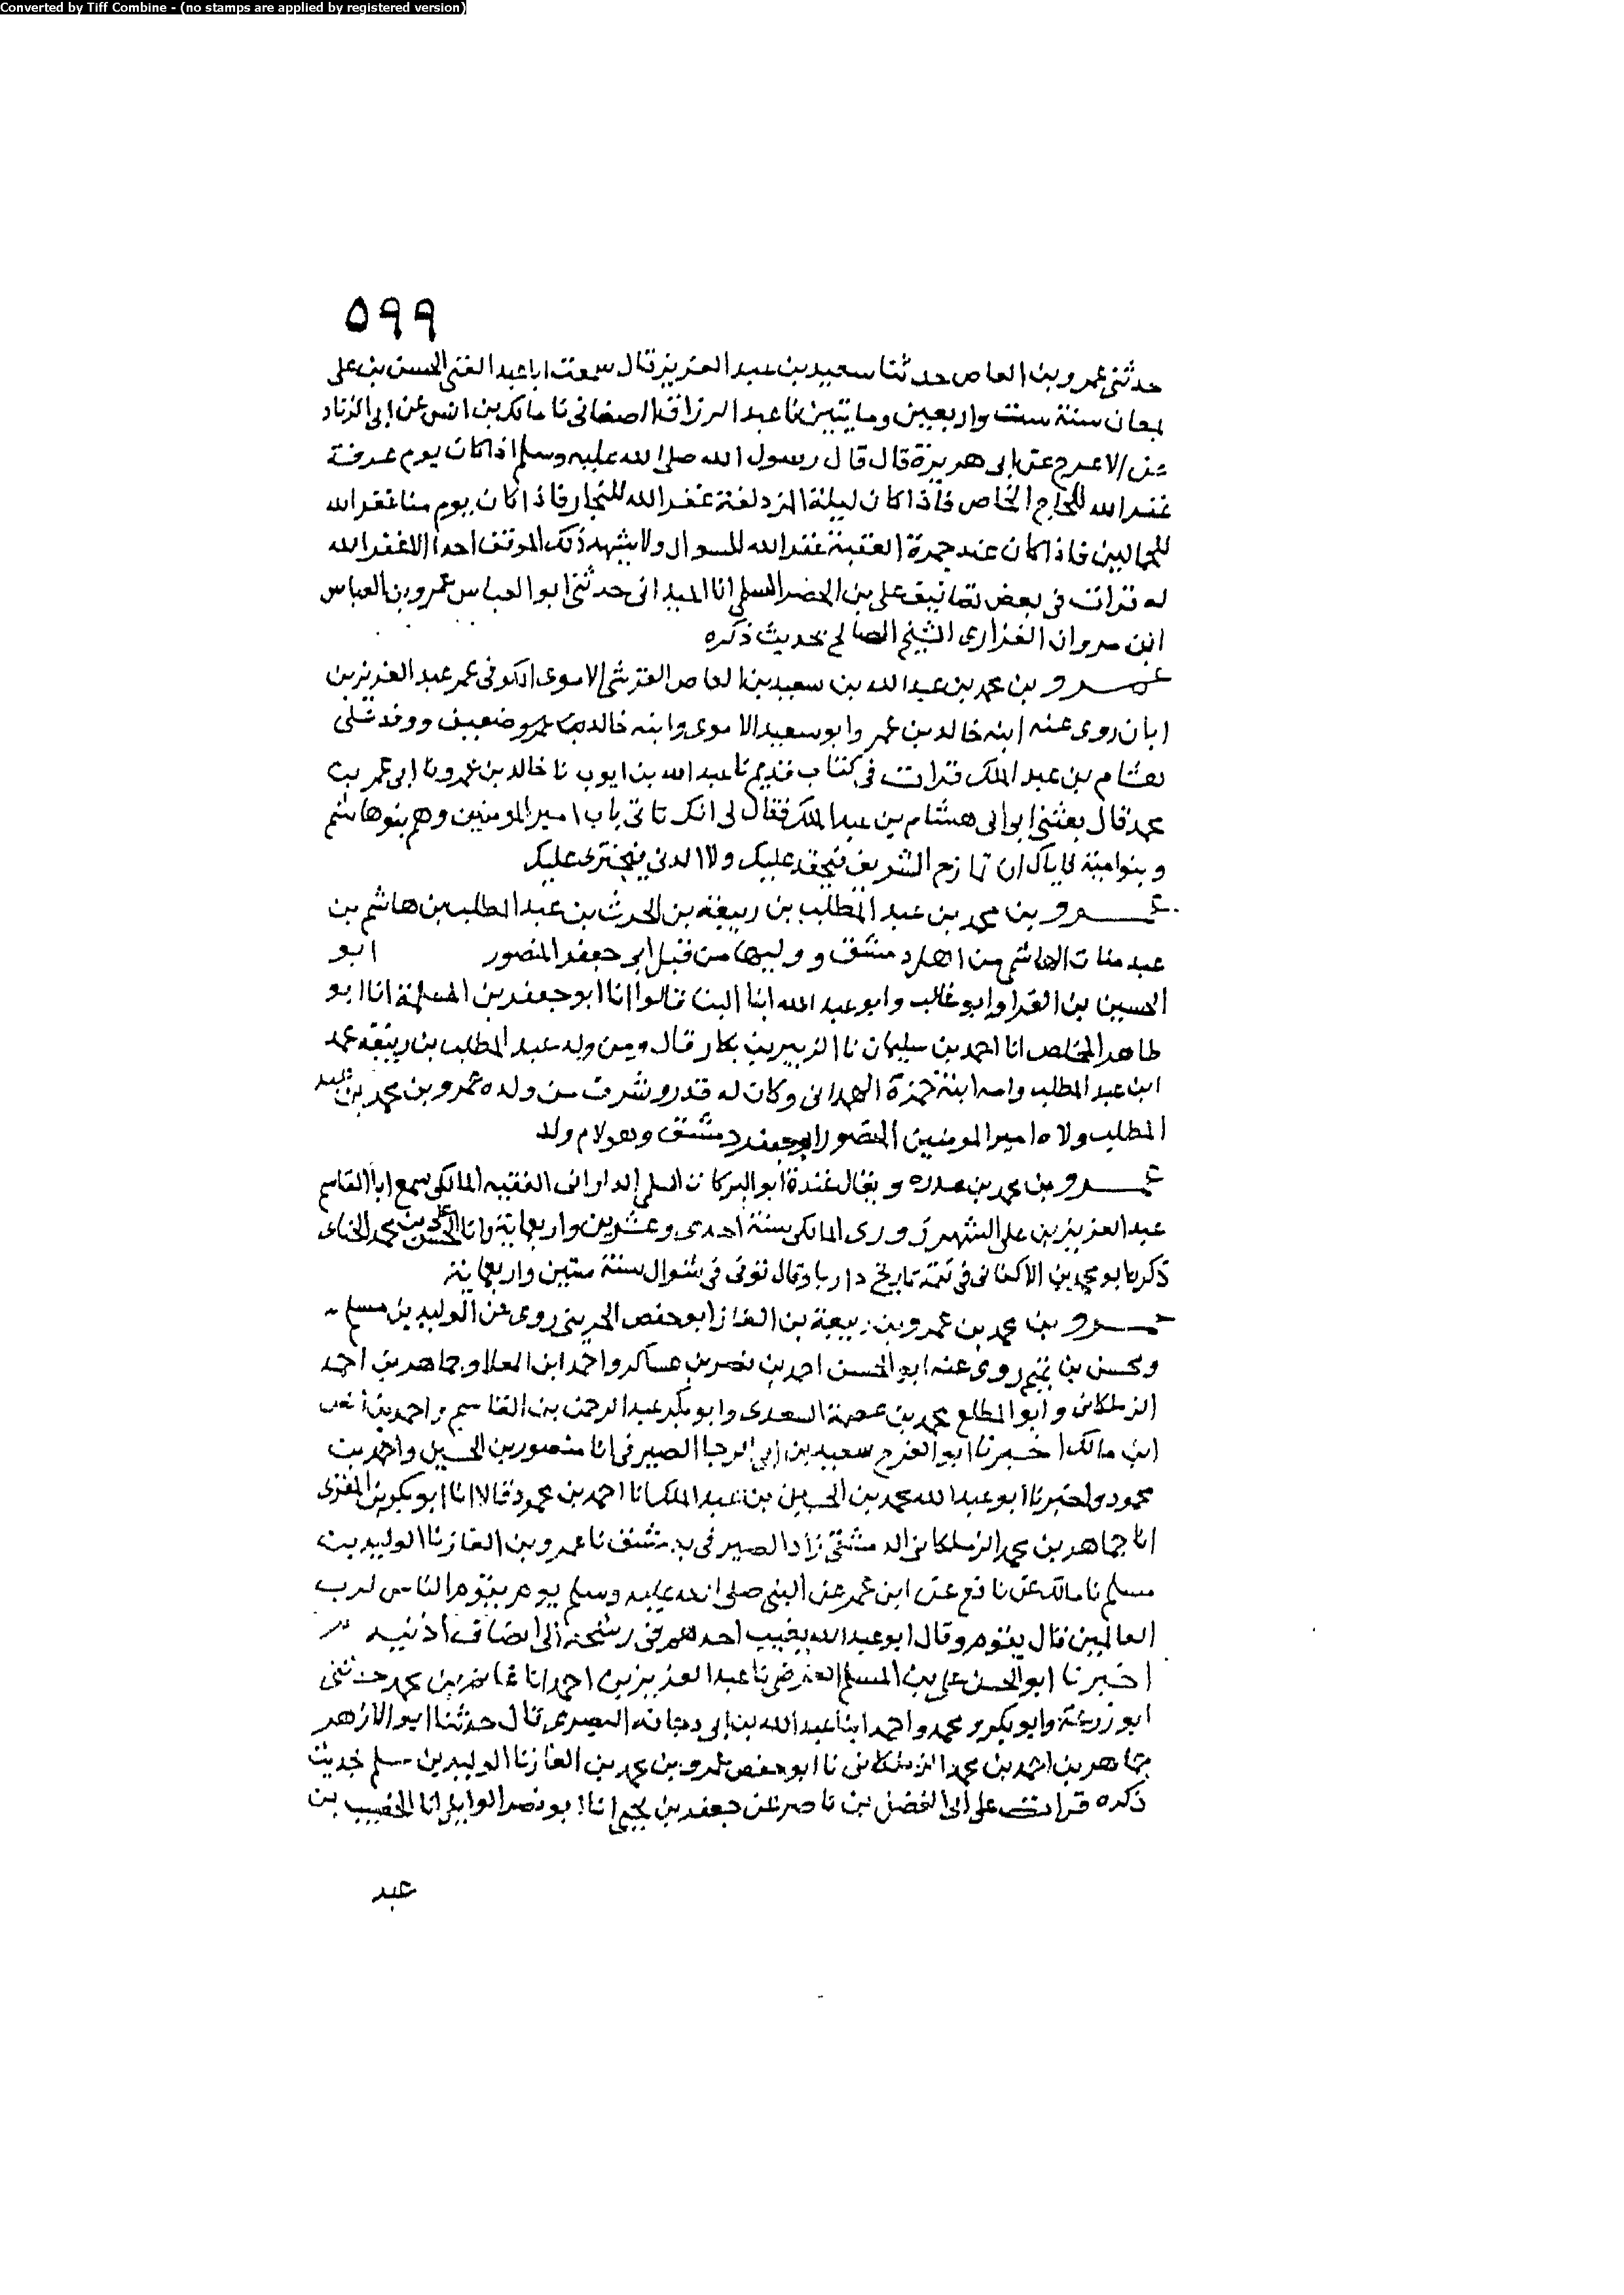 Converted by Tiff Combine - (no stamps are applied by registered version)
٥٩٩
حدثنى عمرو بن العاص حدثنا سعيد بن عبد العزيز قال سمعت ابا عبد الغنى الحسن بن على
بمعان سنة ست واربعين ومايتين نا عبد الرزاق الصغانى نا مالك بن انس عن ابى الزناد
عن الاعرج عن ابى هريرة قال قال رسول الله صلى الله عليه وسلم اذا كان يوم عرفة
غفر الله للحاج الخاص فاذا كان ليلة المزدلفة غفر الله للتجار فاذا كان يوم منا غفر الله
للجمالين فاذا كان عند جمرة العقبة غفر الله للسوال ولا يشهد ذلك الموقف احدا الا غفر الله
له قرات فى بعض تصانيف على بن الخضر السلمى انا الميدانى حدثنى ابو العباس عمرو بن العباس
ابن مروان الفزارى الشيخ الصالح بحديث ذكره
عمرو بن محمد بن عبد الله بن سعيد بن العاص القرشى الاموى الكوفى عم عبد العزيز بن
ابان روى عنه ابنه خالد بن عمرو ابو سعيد الاموى وابنه خالد بن عمرو ضعيف ووفد على
هشام بن عبد الملك قرات فى كتاب قديم نا عبد الله بن ايوب نا خالد بن عمرو نا ابى عمرو بن
محمد قال بعثنى ابى الى هشام بن عبد الملك فقال لى انك تاتى باب امير المومنين وهم بنو هاشم
وبنو امية فاياك ان تمازح الشريف فيحقد عليك ولا الدنى فيجترى عليك
عمرو بن محمد بن عبد المطلب بن ربيعة بن الحرث بن عبد المطلب بن هاشم بن
عبد مناف الهاشمى من اهل دمشق ووليها من قبل ابى جعفر المنصور ابو
الحسين بن الفرا وابو غالب وابو عبد الله ابنا البنا قالوا انا ابو جعفر بن المسلمة انا ابو
طاهر المخلص انا احمد بن سليمان نا الزبير بن بكار قال ومن ولد عبد المطلب بن ربيعة محمد
ابن عبد المطلب وامه ابنة حمزة الهمدانى وكان له قدر وشرف من ولده عمرو بن محمد بن عبد
المطلب ولاه امير المومنين المنصور ابو جعفر دمشق وهو لام ولد
عمرو بن محمد بن ويقال عندة ابو البركات السلمى الدارانى الفقيه المالكى سمع ابا القاسم
عبد العزيز بن على الشهرزورى المالكى سنة احدى وعشرين واربعماية وانا الحسن على بن محمد الحناى
ذكره ابو محمد بن الاكفانى فى تتمة تاريخ داريا وقال توفى فى شوال سنة ستين واربعماية
عمرو بن محمد بن عمرو بن ربيعة بن الغاز ابو حفص الجرشى روى عن الوليد بن مسلم
ومحسن بن تميم روى عنه ابو الحسن احمد بن نصر بن عساكر واحمد ابن العلا وجماهر بن احمد
الزملكانى وابو المطلع محمد بن عصمة السعدى وابو بكر عبد الرحمن بن القاسم واحمد بن انس
ابن مالك اخبرنا ابو الفرج سعيد بن ابى الرجا الصيرفى انا منصور بن الحسين واحمد بن
محمود واخبرنا ابو عبد الله محمد بن الحسين بن عبد الملك انا احمد بن محمود قالا انا ابو بكر بن المقرى
انا جماهر بن محمد الزملكانى الدمشقى زاد الصيرفى بدمشق نا عمرو بن الغاز نا الوليد بن
مسلم نا مالك عن نافع عن ابن عمر عن النبى صلى الله عليه وسلم يوم يقوم الناس لرب
العالمين قال يقوم وقال ابو عبد الله يغيب احدهم فى رشحه الى انصاف اذنيه
اخبرنا ابو الحسن على بن المسلم الفرضى نا عبد العزيز بن احمد انا بن محمد حدثنى
ابو زرعة وابو بكر ومحمد واحمد ابنا عبد الله بن ابى دجانة البصرى قال حدثنا ابو الازهر
جماهر بن احمد بن محمد الزملكانى نا ابو حفص عمرو بن محمد بن الغاز نا الوليد بن مسلم بحديث
ذكره قرات على ابى الفضل بن ناصر عن جعفر بن يحيى انا ابو نصر الوايلى انا الخصيب بن
عبد